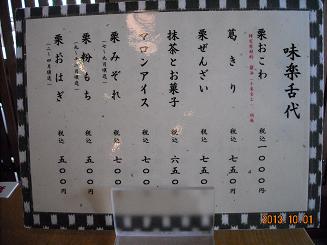 味楽舌代
栗おこわ 税込 一〇〇〇円
葛きり 税込 七五〇円
栗ぜんざい 税込 七五〇円
抹茶とお菓子 税込 六五〇
マロンアイス 税込 七〇〇
栗みぞれ 税込 七〇〇
(七~九月限定)
栗粉もち 税込 五〇〇
栗おはぎ 税込 五〇〇円
2013.10.01